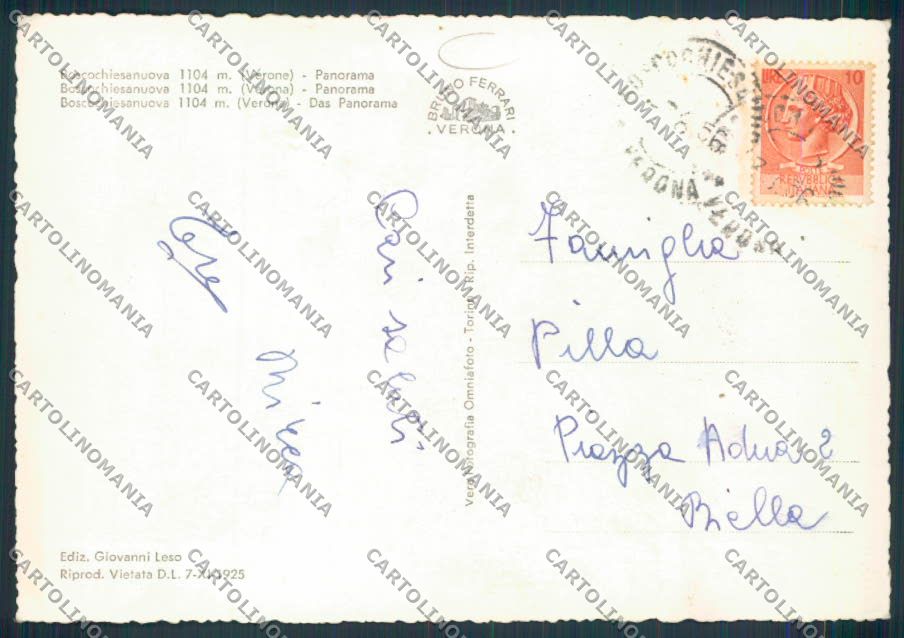 Boscochiesanuova 1104 m. (Verone) - Panorama
Boscochiesanuova 1104 m. (Verona) - Panorama
Boscochiesanuova 1104 m. (Verona) - Das Panorama
BRUNO FERRARI
. VERONA .
LIRE 10
REPVBBLICA
ITALIANA
VERONA
Cari saluti
Famiglia
Pilla
Piazza Adua 2
Biella
Vera Fotografia Omniafoto - Torino - Rip. Interdetta
Ediz. Giovanni Leso
Riprod. Vietata D.L. 7-XI-1925
CARTOLINOMANIA